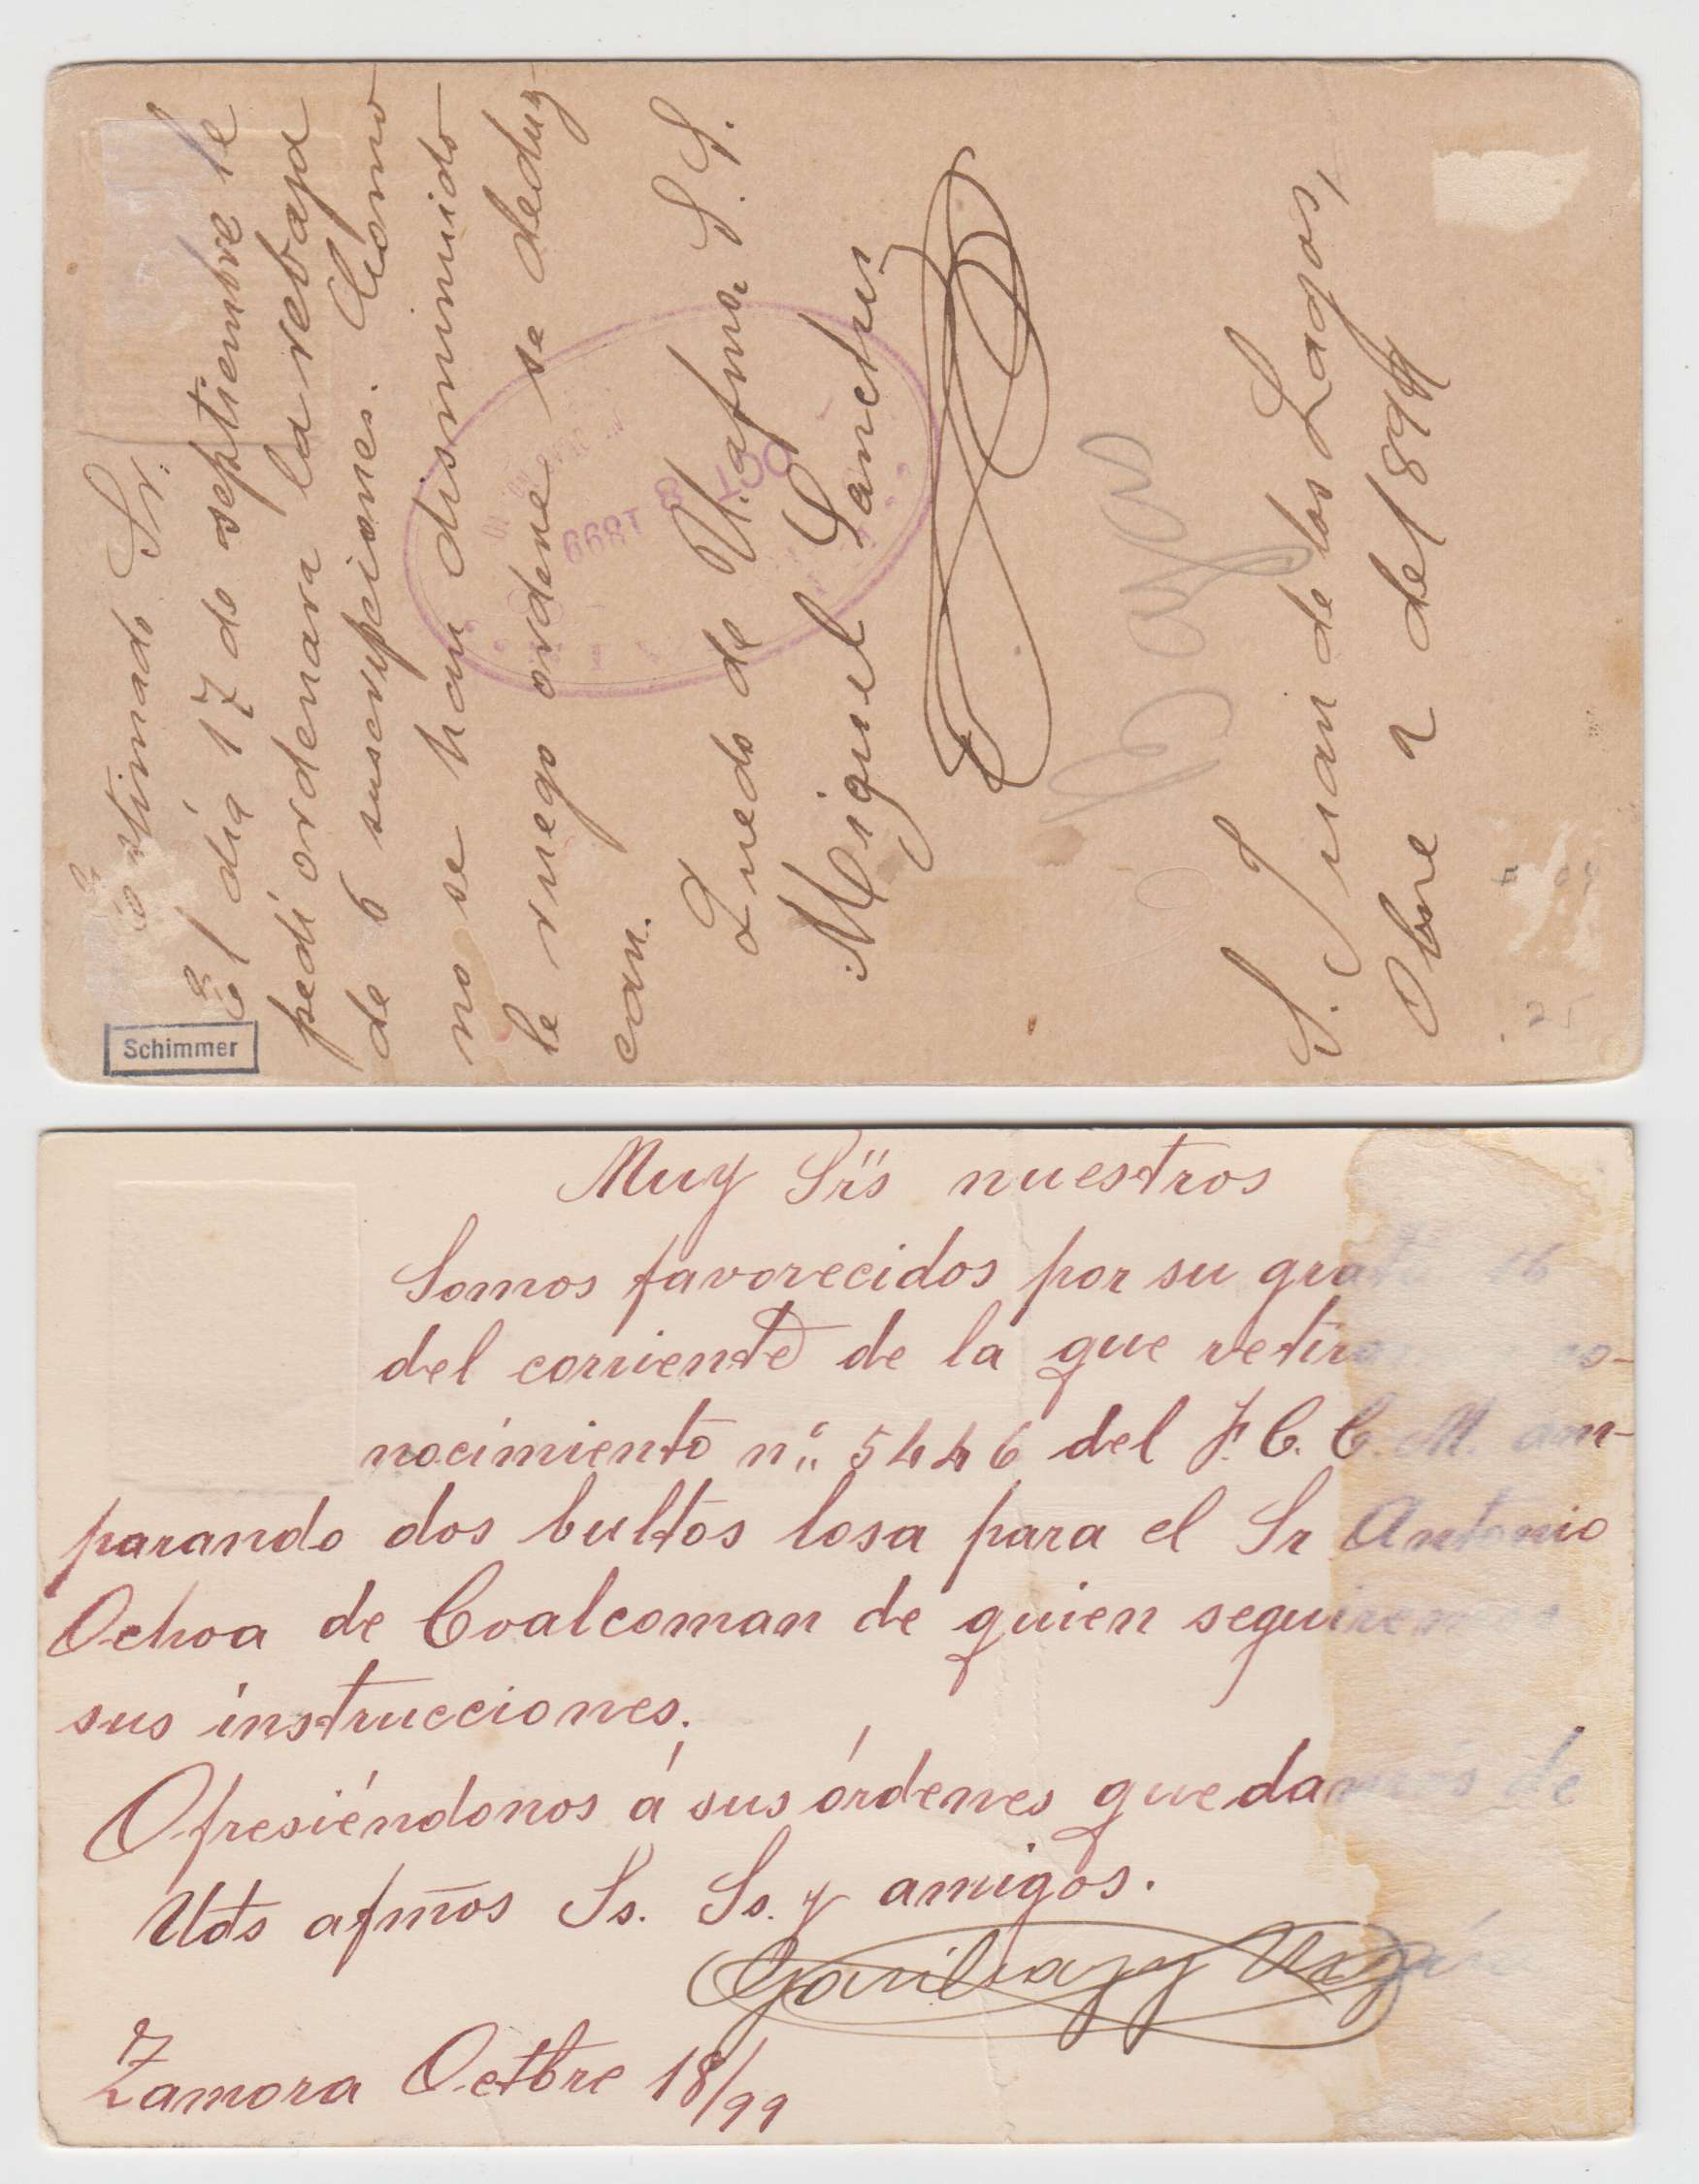 Estimado Sr.
El día 17 de septiembre le
pedí ordenara la rebaja
de 6 suscripciones. Como
no se han disminuido
le ruego ordene se deduz-
can.
Quedo de U. afmo. S. S.
Miguel Sanchez
S. Juan de los Lagos,
Obre 2 de 1899
OCT 8 1899
Schimmer
Muy Srs nuestros
Somos favorecidos por su grata 16
del corriente de la que retiramos co-
nocimiento nº. 5446 del F. C. C. M. am-
parando dos bultos losa para el Sr Antonio
Ochoa de Coalcoman de quien seguiremos
sus instrucciones.
Ofresiéndonos á sus órdenes quedamos de
Uds afmos Ss. Ss. y amigos.
Zamora Octbre 18/99